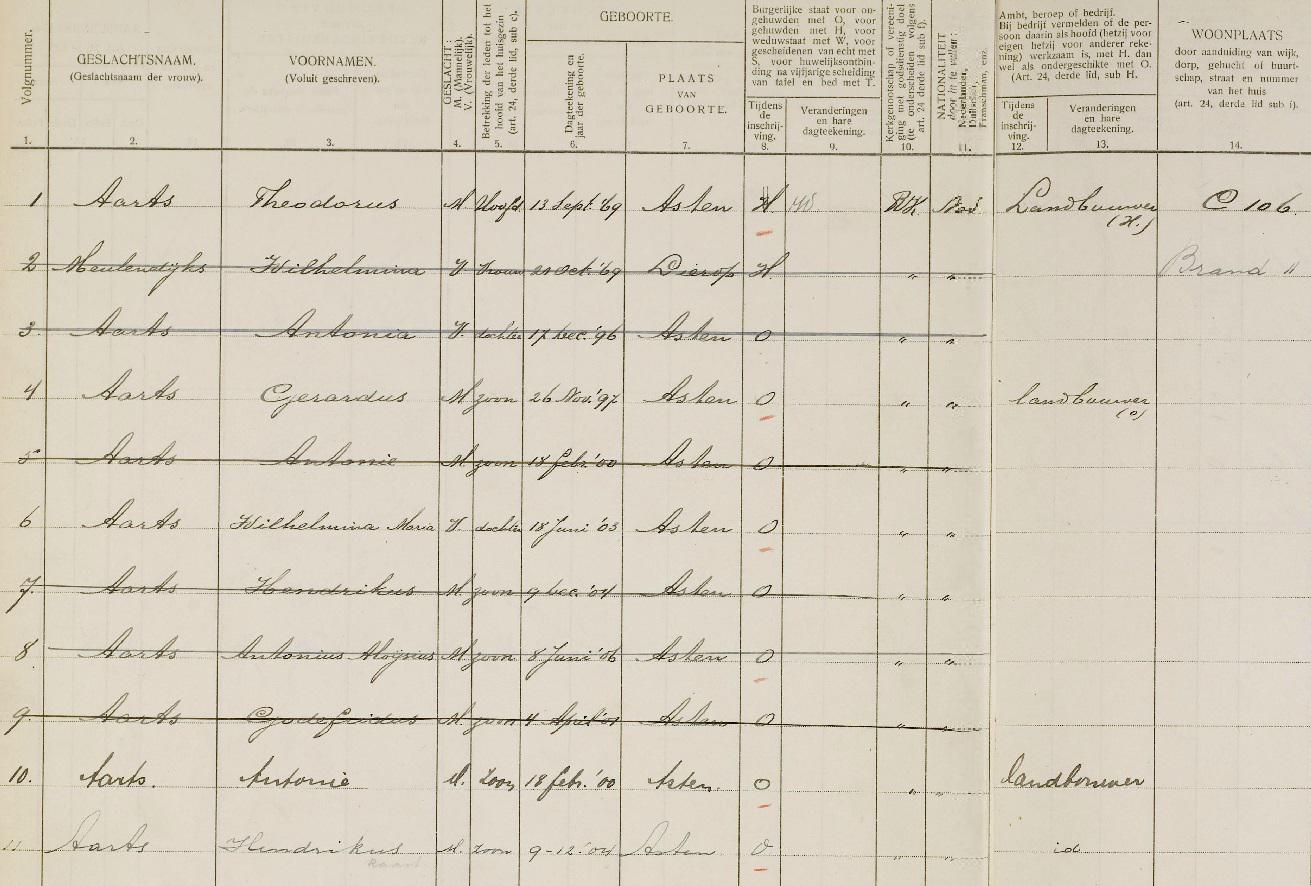 Volgnummer.
1.
GESLACHTSNAAM.
(Geslachtsnaam der vrouw).
2.
VOORNAMEN.
(Voluit geschreven).
3.
GESLACHT:
M. (Mannelijk).
V. (Vrouwelijk).
4.
Betrekking der leden tot het
hoofd van het huisgezin
(art. 24, derde lid, sub c).
5.
GEBOORTE.
Dagteekening en
jaar der geboorte.
6.
PLAATS
VAN
GEBOORTE.
7.
Burgerlijke staat voor on-
gehuwden met O, voor
gehuwden met H, voor
weduwstaat met W, voor
gescheidenen van echt met
S, voor huwelijksontbin-
ding na vijfjarige scheiding
van tafel en bed met T.
Tijdens
de
inschrij-
ving.
8.
Veranderingen
en hare
dagteekening.
9.
Kerkgenootschap of vereeni-
ging met godsdienstig doel
(te onderscheiden volgens
art. 24 derde lid, sub f).
10.
NATIONALITEIT
door in te vullen:
Nederlander,
Duitscher,
Franschman, enz.
11.
Ambt, beroep of bedrijf.
Bij bedrijf vermelden of de per-
soon daarin als hoofd (hetzij voor
eigen hetzij voor anderer reke-
ning) werkzaam is, met H. dan
wel als ondergeschikte met O.
(Art. 24, derde lid, sub H.
Tijdens
de
inschrij-
ving.
12.
Veranderingen
en hare
dagteekening.
13.
WOONPLAATS
door aanduiding van wijk,
dorp, gehucht of buurt-
schap, straat en nummer
van het huis
(art. 24, derde lid sub i).
14.
1 Aarts Theodorus M Hoofd 13 Sept. '69 Asten H W. RK Ned Landbouwer C 106.
(H.)
2 Meulendijks Wilhelmina V Vrouw 21 Oct. '69 Lierop H " " Brand "
3. Aarts Antonia V. dochter 17 Dec. '96 Asten O " "
4 Aarts Gerardus M zoon 26 Nov. '97 Asten O " " landbouwer
(o)
5 Aarts Antonie M. zoon 18 febr. '00 Asten O " "
6 Aarts Wilhelmina Maria V dochter 18 Juni '03 Asten O " "
7. Aarts Hendrikus M. zoon 9 Dec. '04 Asten O " "
8 Aarts Antonius Aloysius M zoon 8 Juni '06 Asten O " "
9. Aarts Godefridus M. zoon 4 April '01 Asten O " "
10. Aarts. Antonie M. Zoon 18 febr. '00 Asten. O " " landbouwer
11 Aarts Hendrikus M. zoon 9-12-'04 Asten O " " id